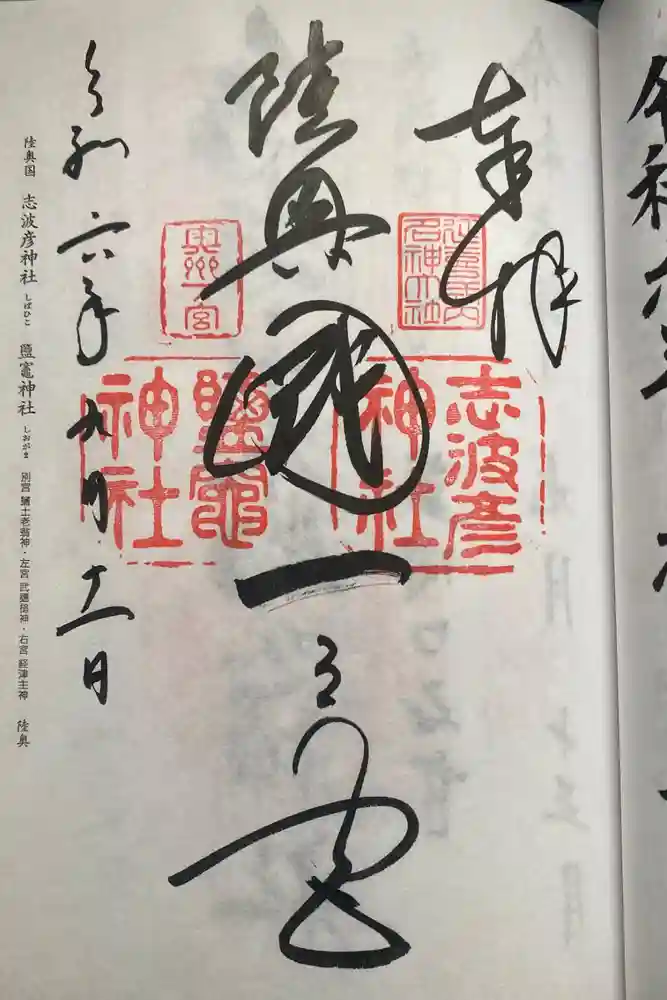 奉拝
陸奥國一之宮
志波彦神社
名神大社
鹽竈神社
奥州一宮
令和六年九月十一日
陸奥国 志波彦神社 しばひこ 鹽竈神社 しおがま 別宮 鹽土老翁神・左宮 武甕槌神・右宮 経津主神 陸奥